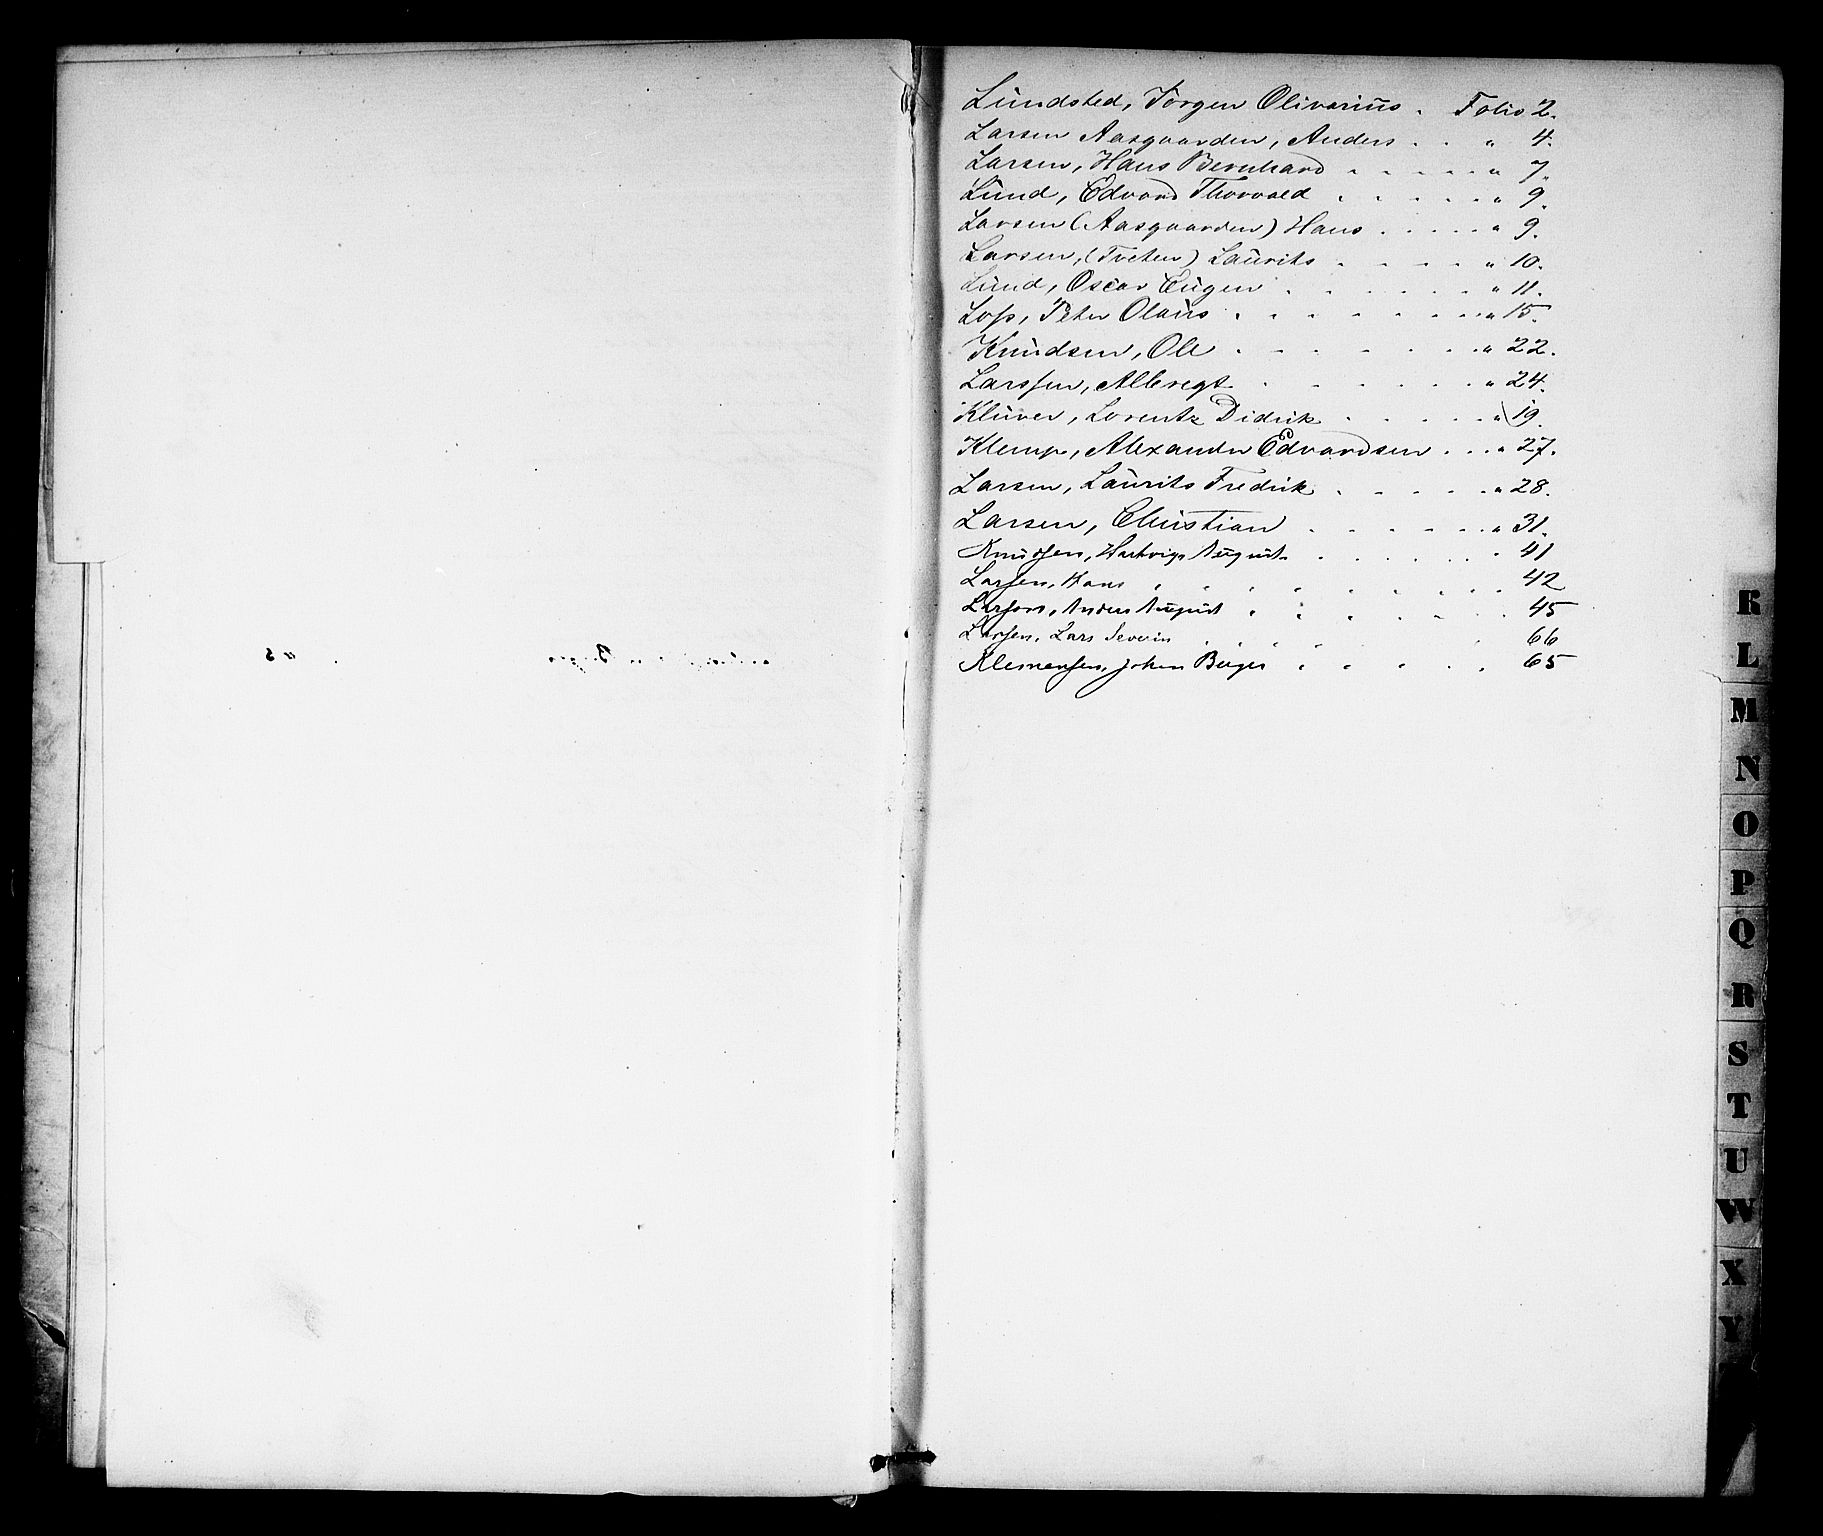 Lundsted, Jørgen Olivarius . Folio 2.
Larsen Aasgaarden, Anders . . " 4.
Larsen, Hans Bernhard . . . . . " 7.
Lund, Edvard Thorvald . . . . . " 9.
Larsen (Aasgaarden) Hans . . . . . " 9.
Larsen, (Tveten) Laurits . . . . . " 10.
Lund, Oscar Eugen . . . . . . " 11.
Løss, Peter Olaus . . . . . . . " 15.
Knudsen, Ole . . . . . . . " 22.
Larssen, Albregt . . . . . . " 24.
Klüver, Lorentz Didrik . . . . . " 19.
Klemp, Alexander Edvardsen . . . " 27.
Larsen, Laurits Fredrik . . . . . " 28.
Larsen, Christian . . . . . . " 31.
Knudsen, Hartvig August . . . . . 41
Larsen, Hans . . . . . . . . 42
Larsen, Anders August . . . . . . 45
Larsen, Lars Severin . . . . . . 66
Klemensen, Johan Birger . . . . . 65
K
L
M
N
O
P
Q
R
S
T
U
W
X
Y